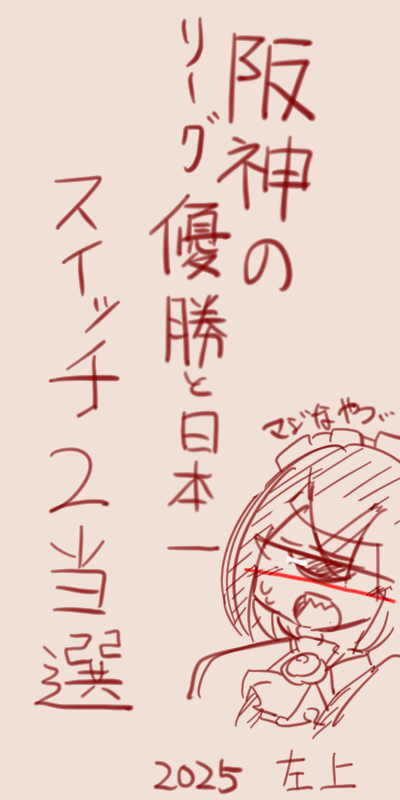 阪神の
リーグ優勝と日本一
スイッチ2当選
マジなやつ…
2025 左上